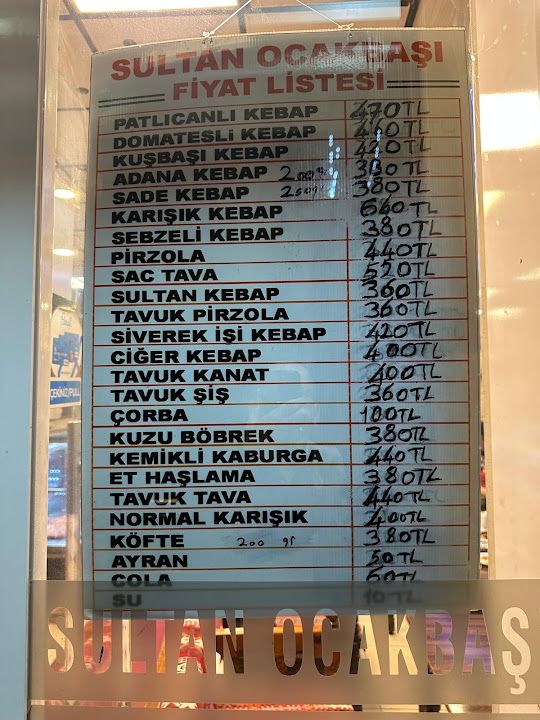 SULTAN OCAKBAŞI
FİYAT LİSTESİ
PATLICANLI KEBAP 470TL
DOMATESLİ KEBAP
KUŞBAŞI KEBAP 420TL
ADANA KEBAP 200gr 380TL
SADE KEBAP 250gr 380TL
KARIŞIK KEBAP 640TL
SEBZELİ KEBAP 380TL
PİRZOLA 440TL
SAC TAVA 520TL
SULTAN KEBAP 360TL
TAVUK PİRZOLA 360TL
SİVEREK İŞİ KEBAP 420TL
CİĞER KEBAP 400TL
TAVUK KANAT 400TL
TAVUK ŞİŞ 360TL
ÇORBA 180TL
KUZU BÖBREK 380TL
KEMİKLİ KABURGA 440TL
ET HAŞLAMA 380TL
TAVUK TAVA 440TL
NORMAL KARIŞIK 400TL
KÖFTE 200 gr 380TL
AYRAN 50TL
COLA 60TL
SU 10TL
ÇEKİNİZ/PULL
SULTAN OCAKBAŞ